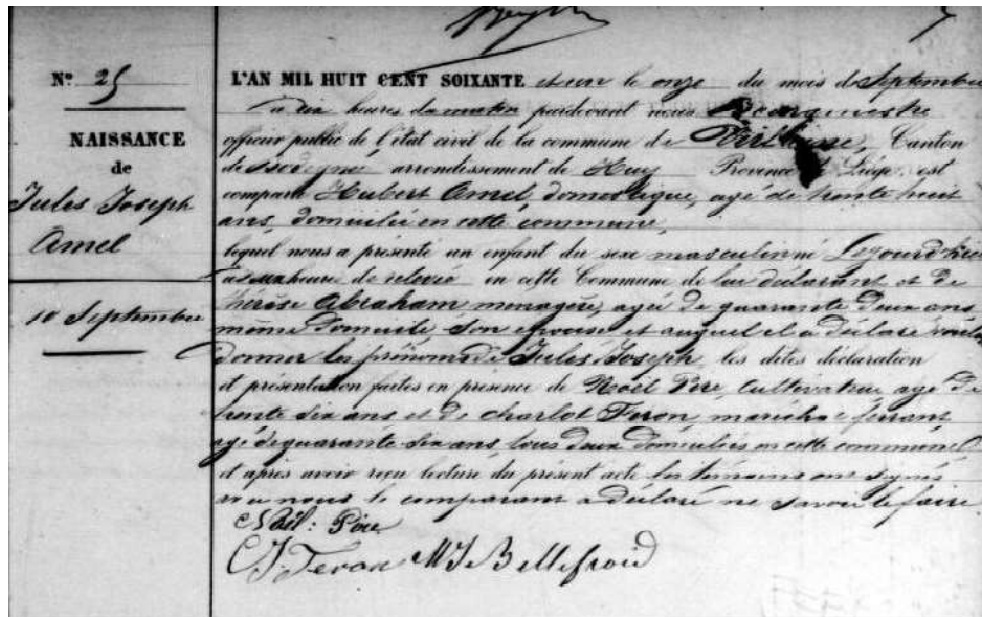 Nº 25
NAISSANCE
de
Jules Joseph
Amel
10 Septembre
L'AN MIL HUIT CENT SOIXANTE et un le onze du mois de Septembre
à dix heures du matin pardevant nous Bourgmestre
officier public de l'état civil de la commune de Canton
de Bodegnée arrondissement de Huy Province de Liége, est
comparu Hubert Amel, domestique, agé de trente huit
ans, domicilié en cette commune,
lequel nous a présenté un enfant du sexe masculin né
heure de relevée en cette Commune de lui déclarant et de
Thérèse Abraham menagère, agée de quarante deux ans
même domicile son épouse et auquel il a déclaré vouloir
donner les prénoms de Jules Joseph, les dites déclaration
et présentation faites en presence de Noël Pire, Cultivateur agé de
trente six ans et de Charlot Feron, maréchal ferrant
agé de quarante six ans, tous deux domiciliés en cette commune
et après avoir reçu lecture du présent acte les témoins ont signés
avec nous le comparant a déclaré ne savoir le faire.
Noël: Pire
C J Feron M J Bellefroid